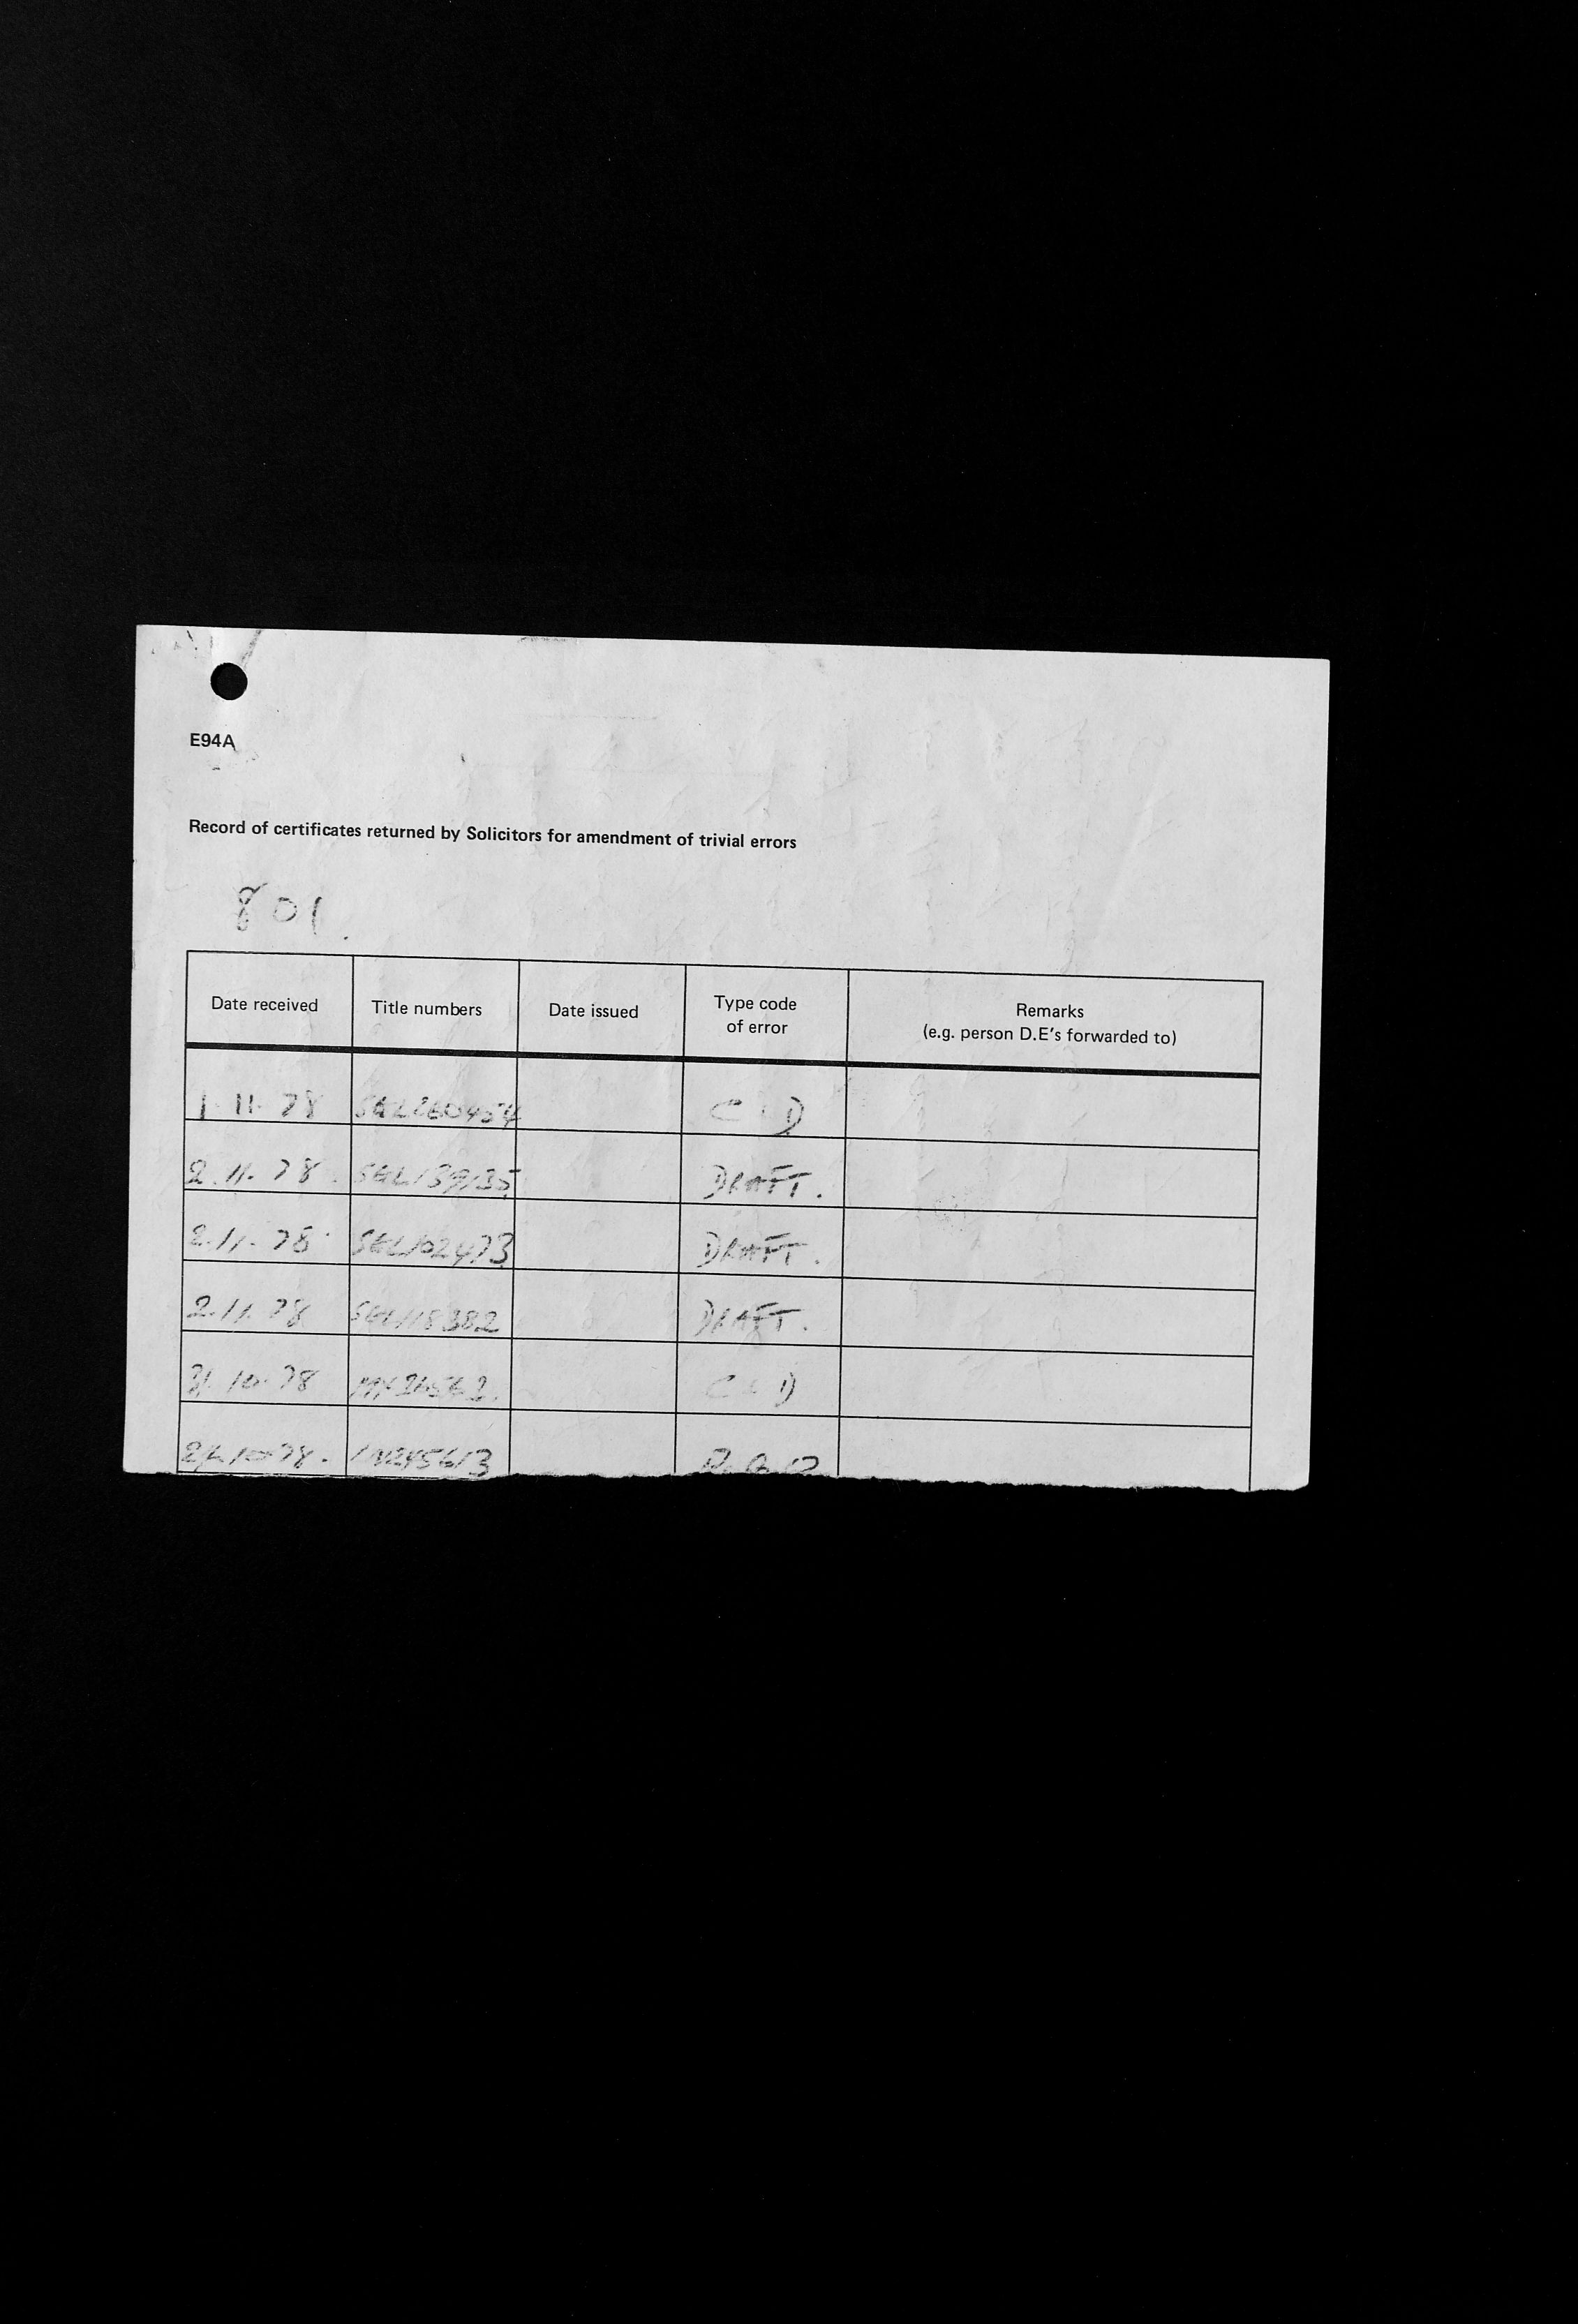 E94A
Record of certificates returned by Solicitors for amendment of trivial errors
801
Date received Title numbers Date issued Type code of error Remarks (e.g. person D.E's forwarded to)
1. 11. 78 SGL260454 C & D
2. 11. 78. SGL139135 DRAFT.
2. 11. 78 SGL102473 DRAFT.
2. 11. 78 SGL118382 DRAFT.
31. 10. 78 C & D
10 78. 245613